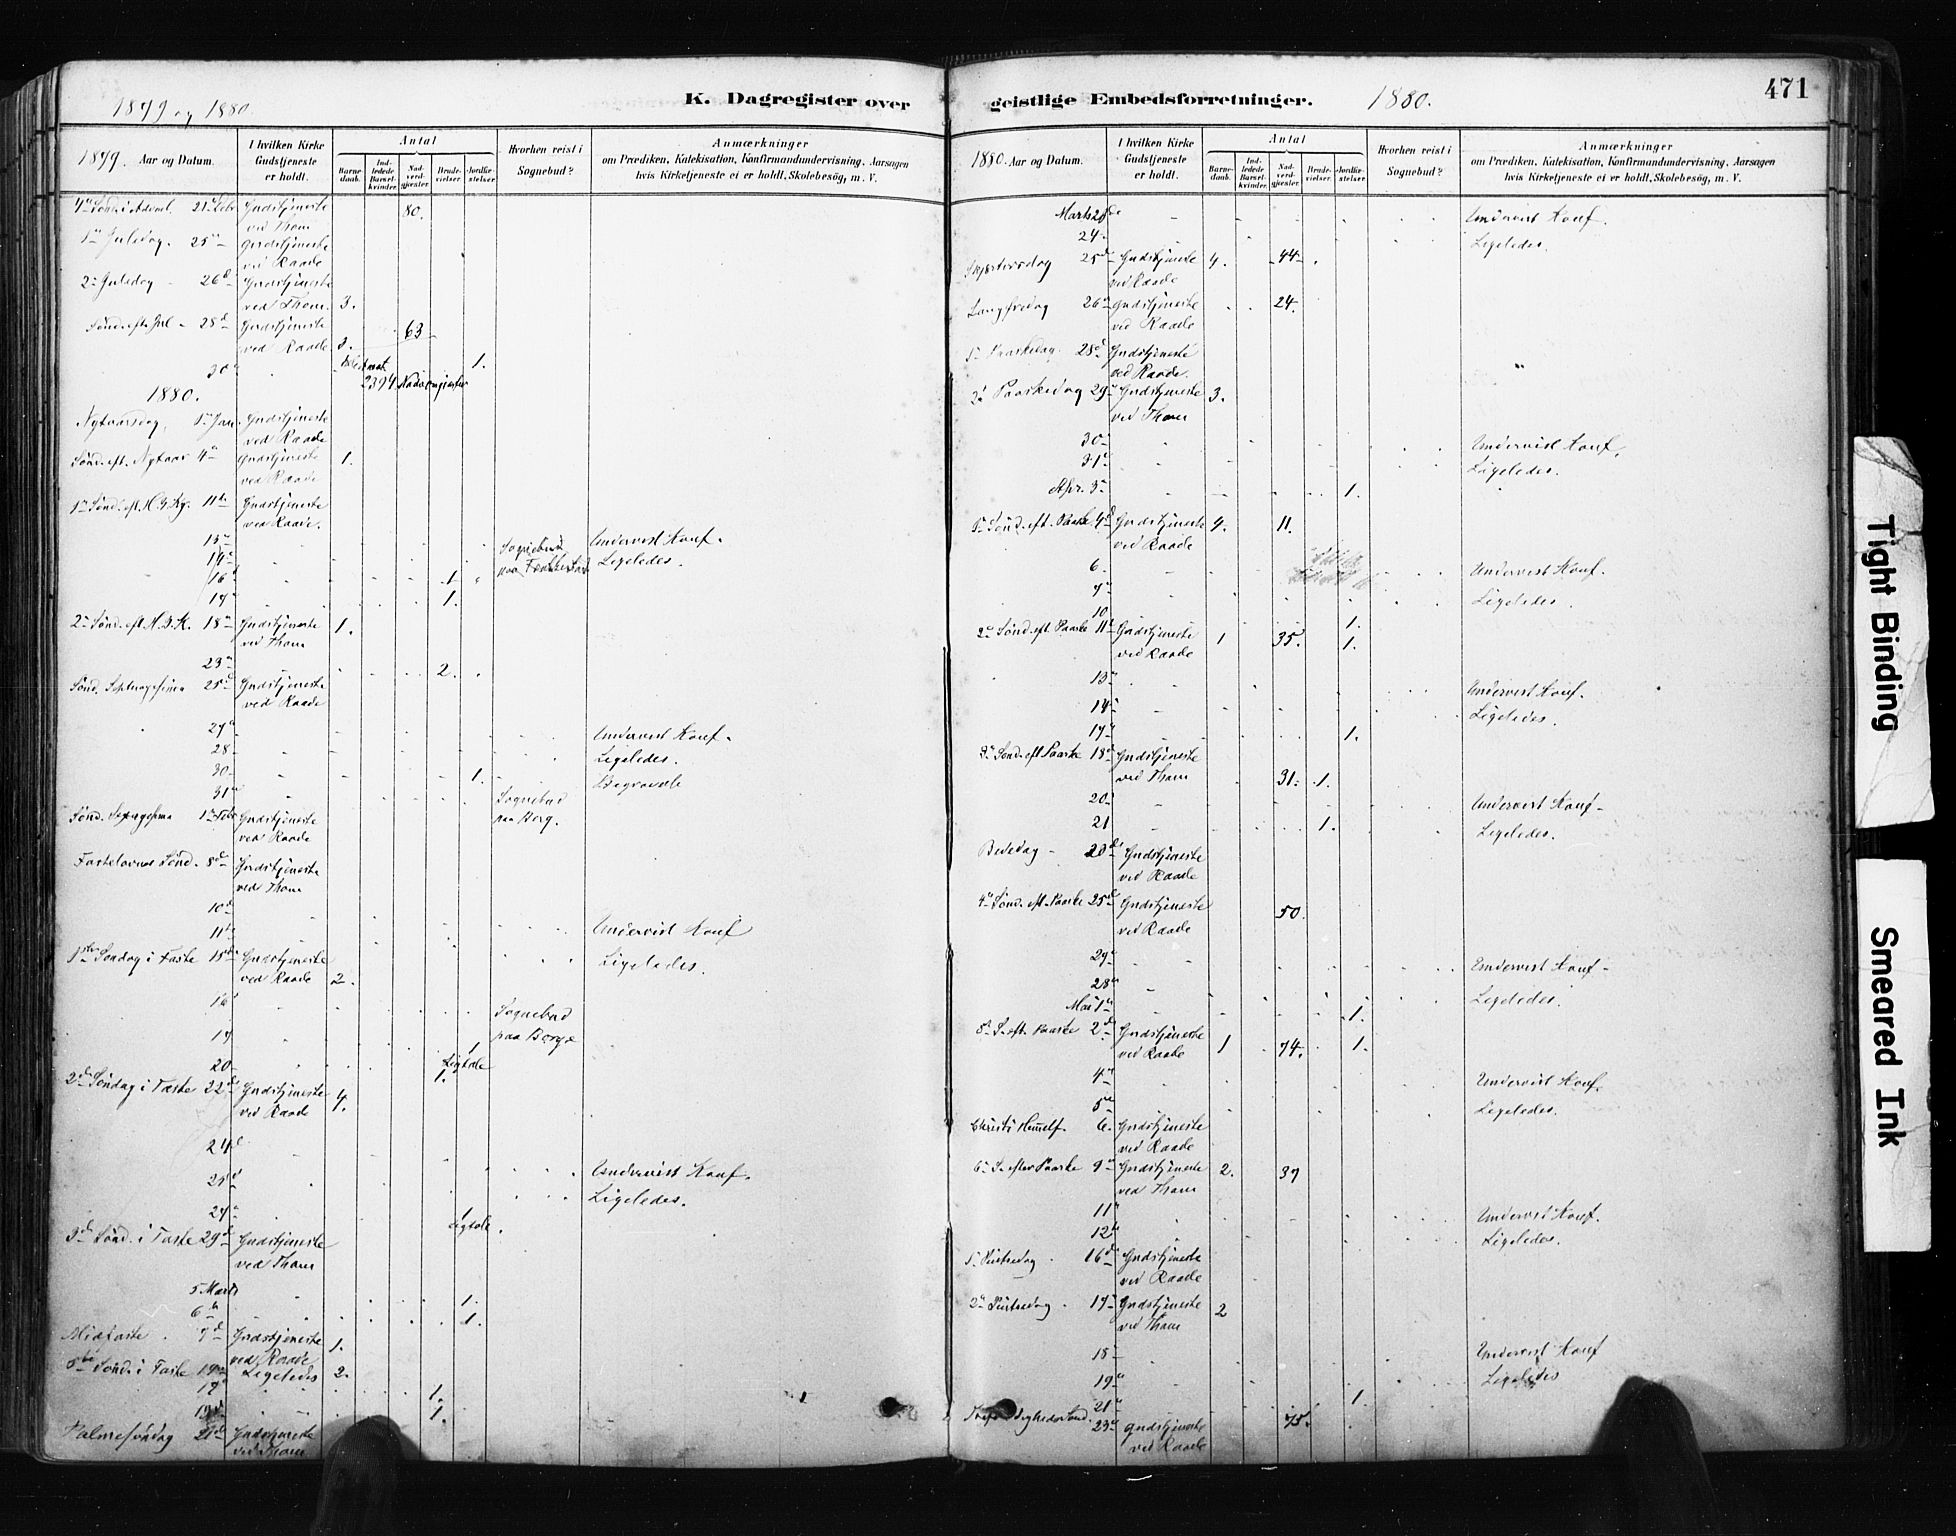 1879 og 1880.
K. Dagregister over
1879. Aar og Datum.
I hvilken Kirke Gudstjeneste er holdt.
Antal
Barnedaab.
Indledede Barselkvinder.
Nadverdgjester
Brudevielser.
Jordfæstelser.
Hvorhen reist i Sognebud?
Anmærkninger
om Prædiken, Katekisation, Konfirmandundervisning, Aarsagen
hvis Kirketjeneste ei er holdt, Skolebesøg, m. V.
4de Sønd. i Advent. 21de Gudstjeneste ved Thom 80.
1ste Juledag. 25de Gudstjeneste ved Raade
2den Juledag 26de Gudstjeneste ved Thom. 3.
Sønd. eft. Jul 28de Gudstjeneste ved Raade 3. 63
30 1.
2394 Nadverdgjester
1880.
Nytaarsdag, 1ste Jan. Gudstjeneste ved Raade
Sønd. eft. Nytaar 4de Gudstjeneste ved Raade 1.
1ste Sønd. eft. H.3.Kg. 11te Gudstjeneste ved Raade.
13de Undervist Konf.
14de Sognebud paa Ligeledes.
16de 1
17 1.
2den Sønd. eft. H.3.K. 18de Gudstjeneste ved Thom 1.
23de 2.
Sønd. Septuagesima 25de Gudstjeneste ved Raade
27de Undervist Konf.
28 Ligeledes.
30 1. Begravede
31te Sognebud paa Berg.
Sønd. Sexagesima 1ste Febr Gudstjeneste ved Raade
Fastelavns Sønd. 8de Gudstjeneste ved Thom
10de
11te Undervist Konf
1ste Søndag i Faste 15de Gudstjeneste ved Raade 2. Ligeledes.
16 Sognebud
17 1 paa Berge
20 Ligtale
2den Søndag i Faste 22de Gudstjeneste ved Raade 4. 1.
24de
25de Undervist Konf.
Ligeledes.
27de 1 Ligtale
3die Sønd. i Faste 29de Gudstjeneste ved Thom
5 Marts 1.
6te 1.
Midfaste. 7de Gudstjeneste ved Raade 1.
5te Sønd. i Faste 14de Ligeledes 2.
17 1.
19de 1.
Palmesøndag 21de Gudstjeneste ved Thom
471
geistlige Embedsforretninger. 1880.
1880. Aar og Datum.
I hvilken Kirke Gudstjeneste er holdt.
Antal
Barnedaab.
Indledede Barselkvinder.
Nadverdgjester
Brudevielser.
Jordfæstelser.
Hvorhen reist i Sognebud?
Anmærkninger
om Prædiken, Katekisation, Konfirmandundervisning, Aarsagen
hvis Kirketjeneste ei er holdt, Skolebesøg, m. V.
Marts Undervist Konf.
24. Ligeledes.
Skjærtorsdag 25de Gudstjeneste ved Raade 4. 44
Langfredag 26de Gudstjeneste ved Raade 24.
1ste Paaskedag 28de Gudstjeneste ved Raade.
2den Paaskedag 29de Gudstjeneste ved Thom 3.
30 Undervist Konf.
31te Ligeledes.
Apr. 3de 1.
1ste Sønd. eft. Paaske 4de Gudstjeneste ved Raade 4. 11.
6. Undervist Konf.
7de Ligeledes.
10 1.
2den Sønd. eft. Paaske 11te Gudstjeneste ved Raade 1 35. 1.
13de Undervist Konf.
14de Ligeledes.
17de 1.
3die Sønd. eft Paaske 18de Gudstjeneste ved Thom 31. 1.
20 Undervist Konf
21 1. Ligeledes.
Bededag Gudstjeneste ved Raade
4de Sønd. eft. Paaske 25de Gudstjeneste ved Raade 50.
Undervist Konf
28de Ligeledes.
Mai 1ste 1.
5te S. eft. Paaske 2den Gudstjeneste ved Raade 1 74. 1.
4de Undervist Konf.
5te Ligeledes.
Christi Himelf. 6. Gudstjeneste ved Raade
6te S. efter Paaske 9de Gudstjeneste ved Thom 2. 37
11te Undervist Konf.
12te Ligeledes.
1ste Pintsedag 16de Gudstjeneste ved Raade
2den Pintsedag. 17de Gudstjeneste ved Thom 2
18 Undervist Konf
19de Ligeledes
21de 1.
23de Gudstjeneste ved Raade 75.
Tight Binding
Smeared Ink